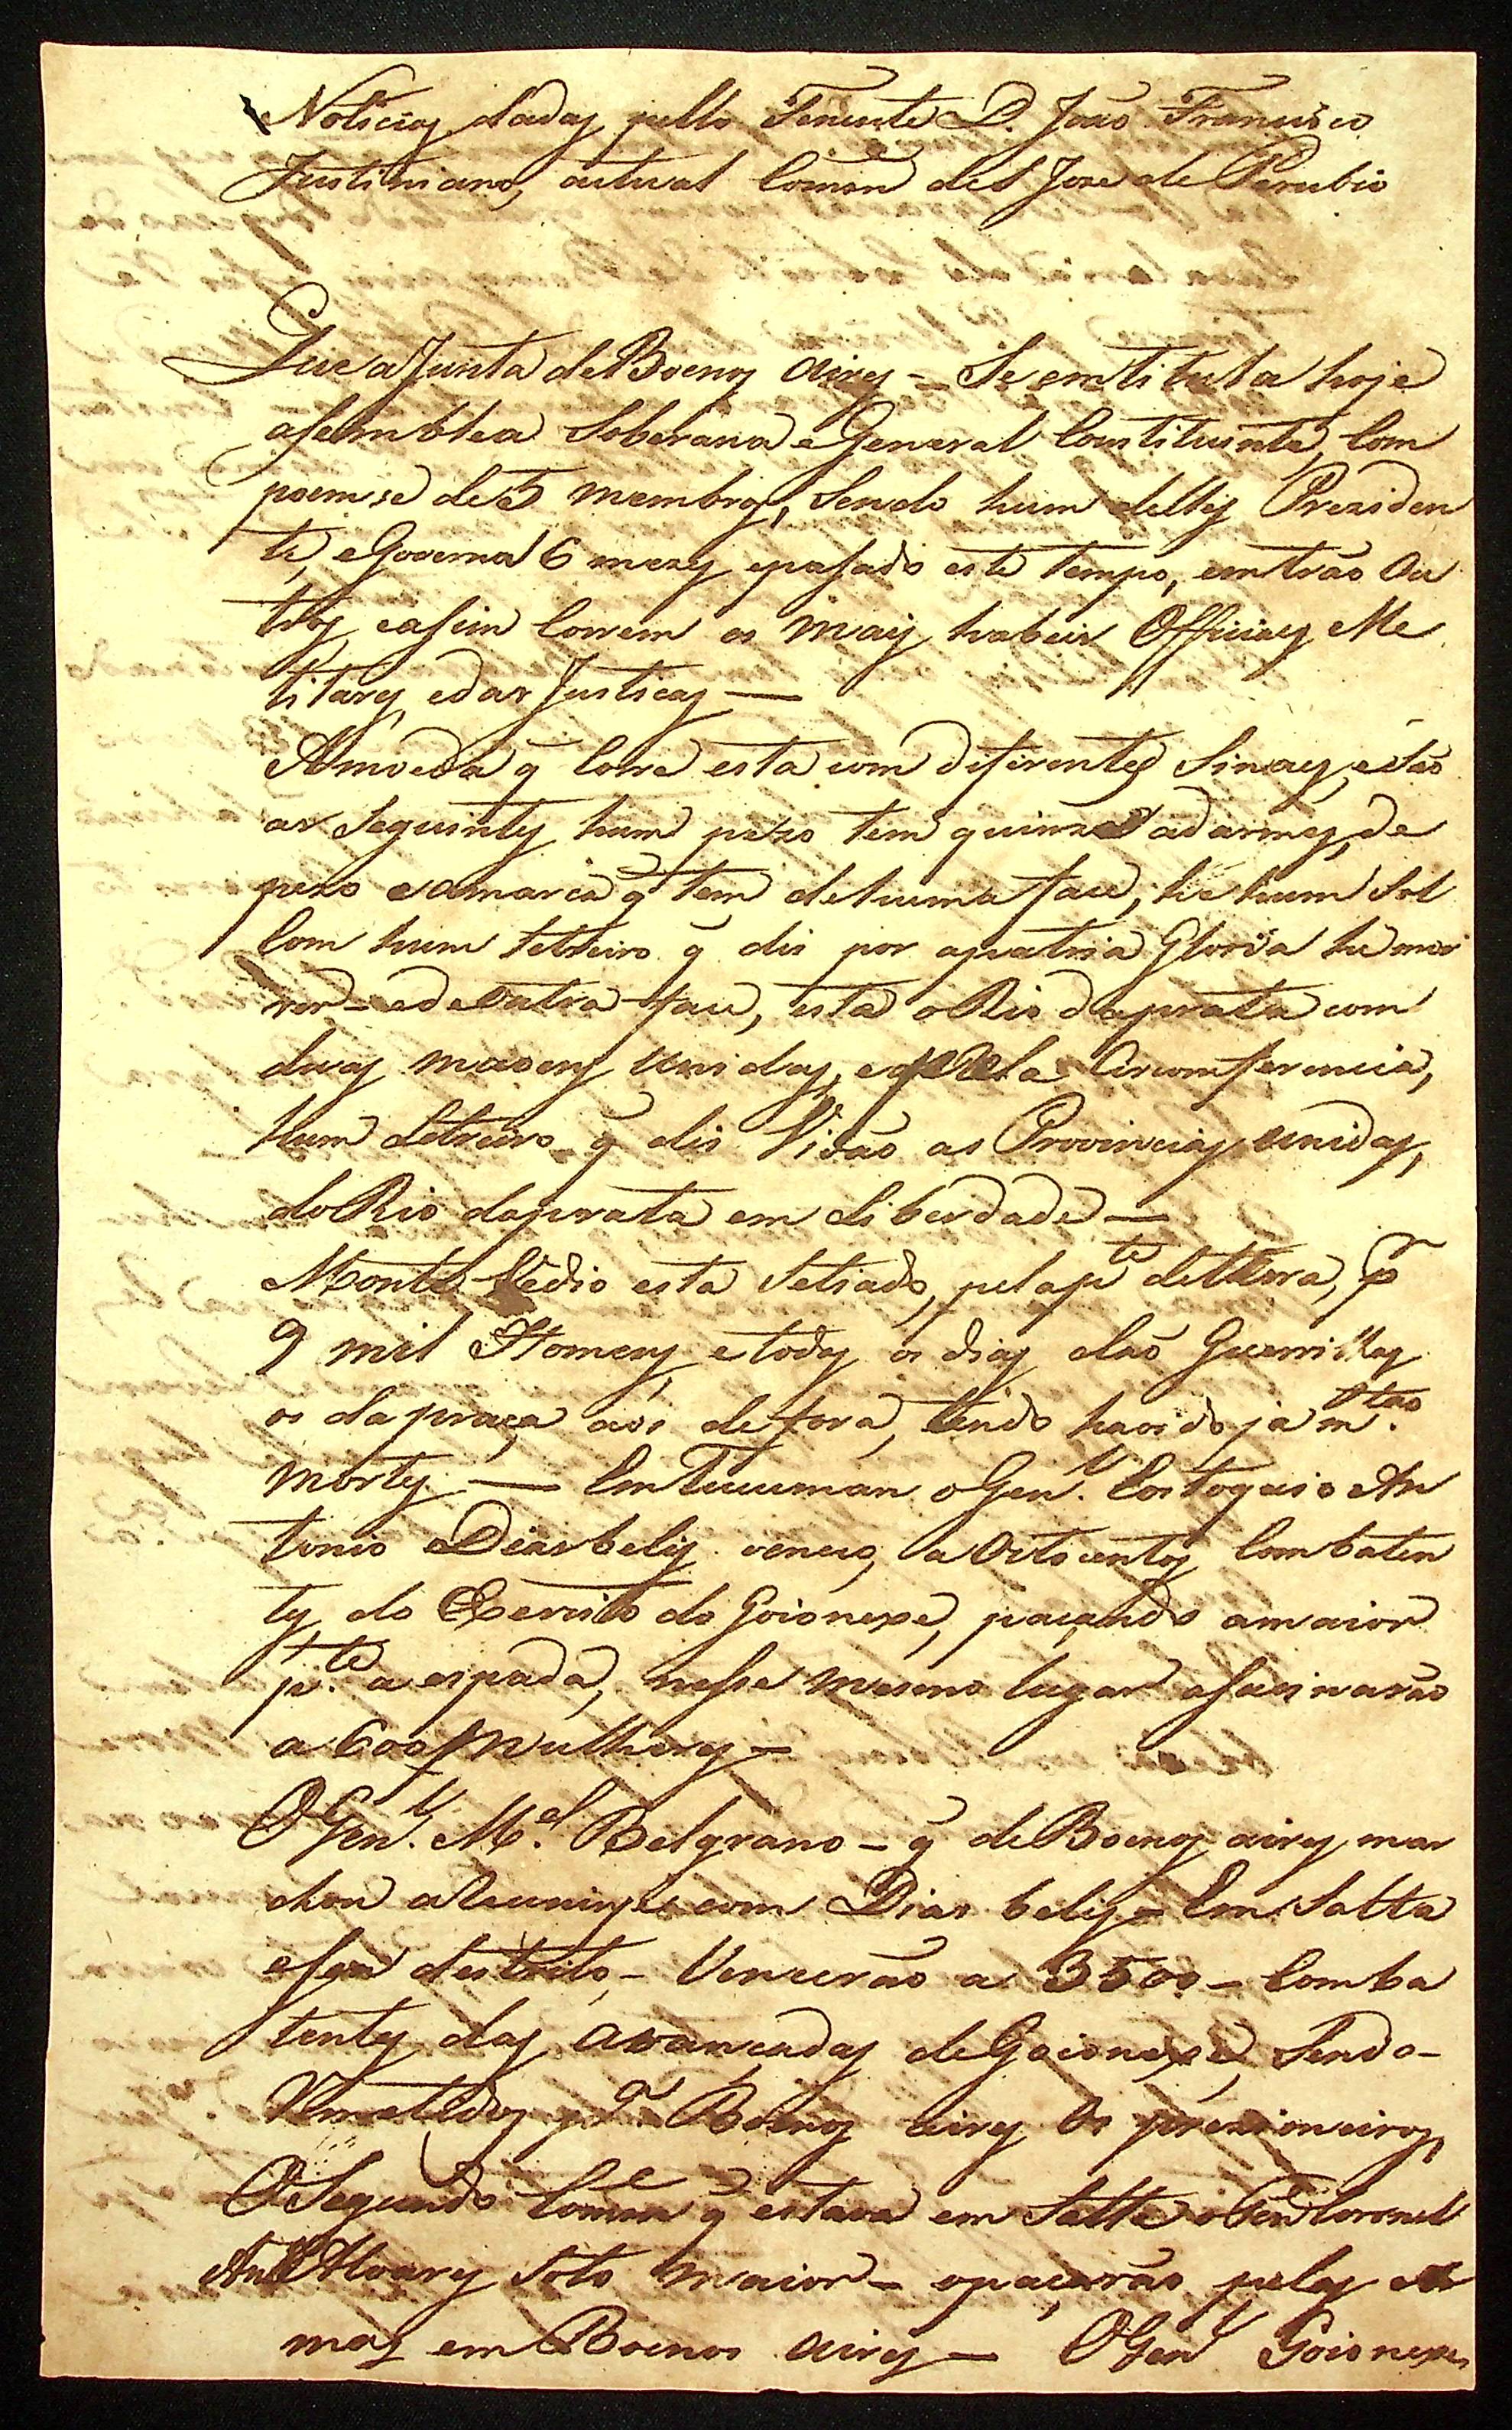 Noticias dadas pello Tenente D. João Francisco
Justiniano, actual Coman. del Joze de Perubio
Que a Junta de Boenos Aires - Se entitula hoje
asemblea Soberana e General Constituinte, Com
poemse de 5 membros, Sendo hum delles Preziden
te, e Governa 6 mezes, e pasado este tempo, entrão Ou
tros, e asim Correm os mais habeis Officiaes Me
litares, e das Justiças —
A moeda q̃ Corre esta com diferentes Sinaes, e são
as Seguintes, hum pezo tem quinze adarmes, de
pezo e a marca q̃ tem de huma face, he hum Sol
Com hum letreiro q̃ dis por a patria Gloria he mor
rer - e de outra face, esta o Rio da prata com
duas maons unidas, e pella Circomferencia,
hum Letreiro q̃ dis Vivão as Provincias unidas,
do Rio da prata em Liberdade —
Monte Vedio esta Setiado, pela p.te de terra, p.r
9 mil Homens, e todos os dias dão Guerrilhas
os da praça aos de fora, tendo havido ja m.tas
mortes — Em Tucuman o Gen.l Eostoquio An
tonio Dias beles venceo, a Oitocentos Combaten
tes do Exercito do Goionexe, pacando a maior
p.te a espada, nesse mesmo lugar asacinarão
a 600 Mulheres —
O Gen.l M.el Belgrano - q̃ de Boenos aires mar
chou a Reunirse com Dias beles - Em Salta
e seu destrito, - Vencerão a 3500 - Comba
tentes das avancadas de Goionexe, Sendo -
Remetidos p.a Boenos aires Os prezioneiros,
O Segundo Coman.e q̃ estava em Salta o Ten Coronel
An.to Alvares Soto maior - o pacarão pelas Ar
mas em Boenos Aires — O Gen.l Goionexe,